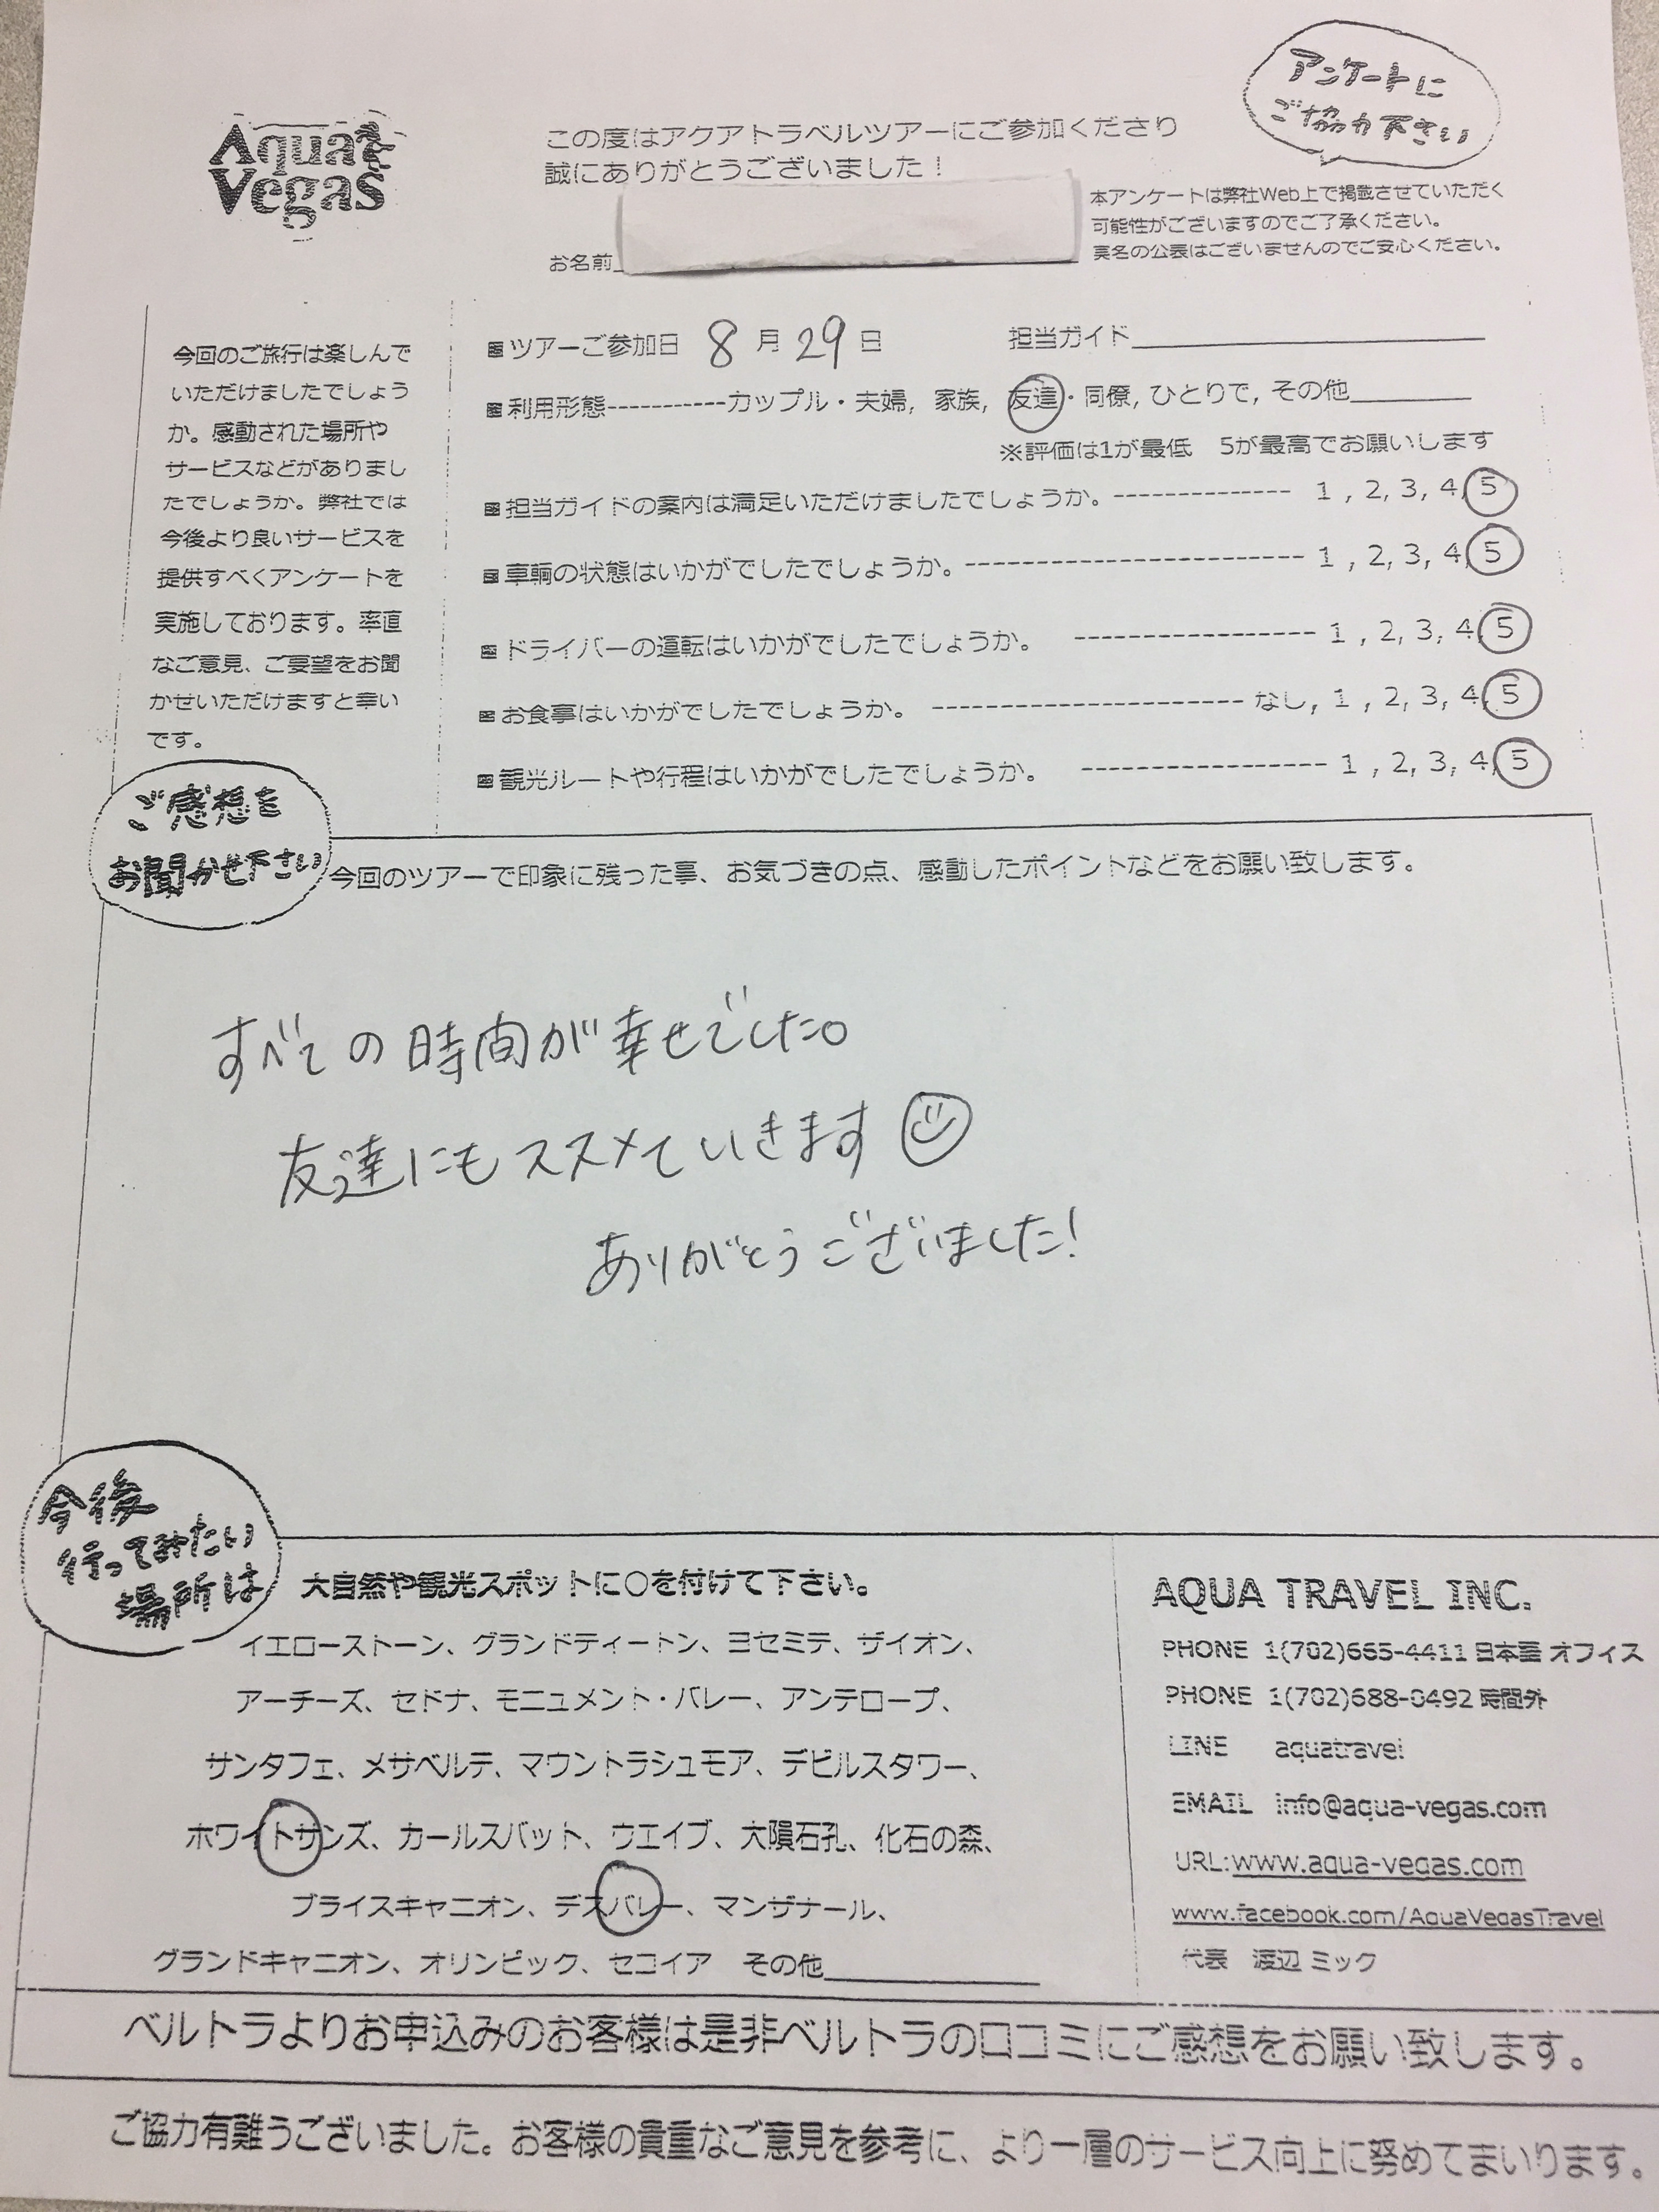 Aqua Vegas
アンケートに
ご協力下さい
この度はアクアトラベルツアーにご参加くださり
誠にありがとうございました！
本アンケートは弊社Web上で掲載させていただく
可能性がございますのでご了承ください。
実名の公表はございませんのでご安心ください。
お名前
今回のご旅行は楽しんで
いただけましたでしょう
か。感動された場所や
サービスなどがありまし
たでしょうか。弊社では
今後より良いサービスを
提供すべくアンケートを
実施しております。率直
なご意見、ご要望をお聞
かせいただけますと幸い
です。
ツアーご参加日 8 月 29 日 担当ガイド
利用形態-----------カップル・夫婦, 家族, 友達・同僚, ひとりで, その他
※評価は1が最低 5が最高でお願いします
担当ガイドの案内は満足いただけましたでしょうか。-------------- 1 , 2, 3, 4, 5
車輌の状態はいかがでしたでしょうか。--------------------------- 1 , 2, 3, 4, 5
ドライバーの運転はいかがでしたでしょうか。 ------------------ 1 , 2, 3, 4, 5
お食事はいかがでしたでしょうか。 ----------------------- なし, 1 , 2, 3, 4, 5
観光ルートや行程はいかがでしたでしょうか。 ------------------ 1 , 2, 3, 4, 5
ご感想を
お聞かせ下さい
今回のツアーで印象に残った事、お気づきの点、感動したポイントなどをお願い致します。
すべての時間が幸せでした。
友達にもススメていきます
ありがとうございました!
今後
行ってみたい
場所は
大自然や観光スポットに○を付けて下さい。
イエローストーン、グランドティートン、ヨセミテ、ザイオン、
アーチーズ、セドナ、モニュメント・バレー、アンテロープ、
サンタフェ、メサベルテ、マウントラシュモア、デビルスタワー、
ホワイトサンズ、カールスバット、ウエイブ、大隕石孔、化石の森、
ブライスキャニオン、デスバレー、マンザナール、
グランドキャニオン、オリンピック、セコイア その他
AQUA TRAVEL INC.
PHONE 1(702)665-4411 日本語 オフィス
PHONE 1(702)688-0492 時間外
LINE aquatravel
EMAIL info@aqua-vegas.com
URL:www.aqua-vegas.com
www.facebook.com/AquaVegasTravel
代表 渡辺 ミック
ベルトラよりお申込みのお客様は是非ベルトラの口コミにご感想をお願い致します。
ご協力有難うございました。お客様の貴重なご意見を参考に、より一層のサービス向上に努めてまいります。